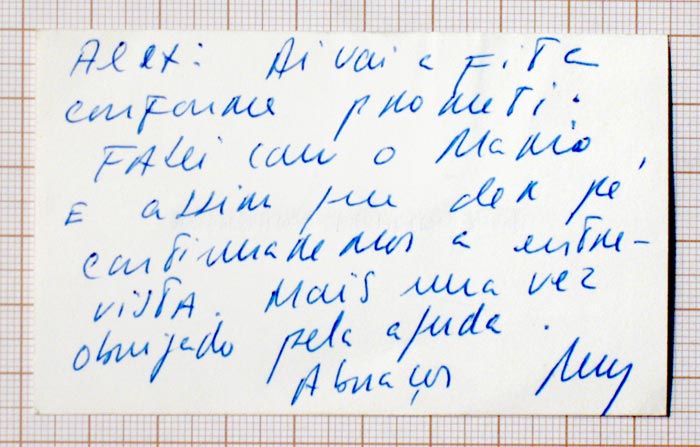 Alex: Aí vai a fita
conforme prometi.
Falei com o Mario,
E assim que der pé
continuaremos a entre-
vista. Mais uma vez
obrigado pela ajuda.
Abraços